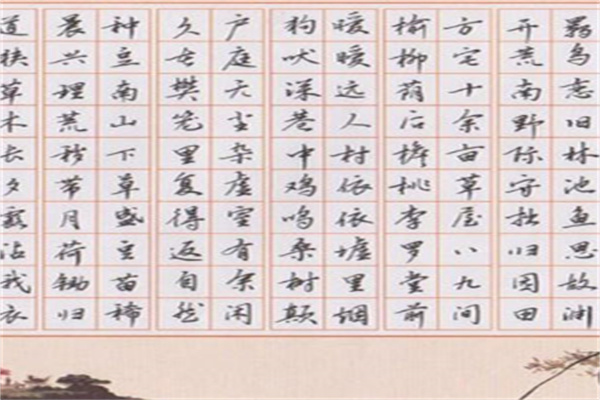 羁鸟恋旧林池鱼思故渊
开荒南野际守拙归园田
方宅十余亩草屋八九间
榆柳荫后檐桃李罗堂前
暖暖远人村依依墟里烟
狗吠深巷中鸡鸣桑树颠
户庭无尘杂虚室有余闲
久在樊笼里复得返自然
种豆南山下草盛豆苗稀
晨兴理荒秽带月荷锄归
道狭草木长夕露沾我衣